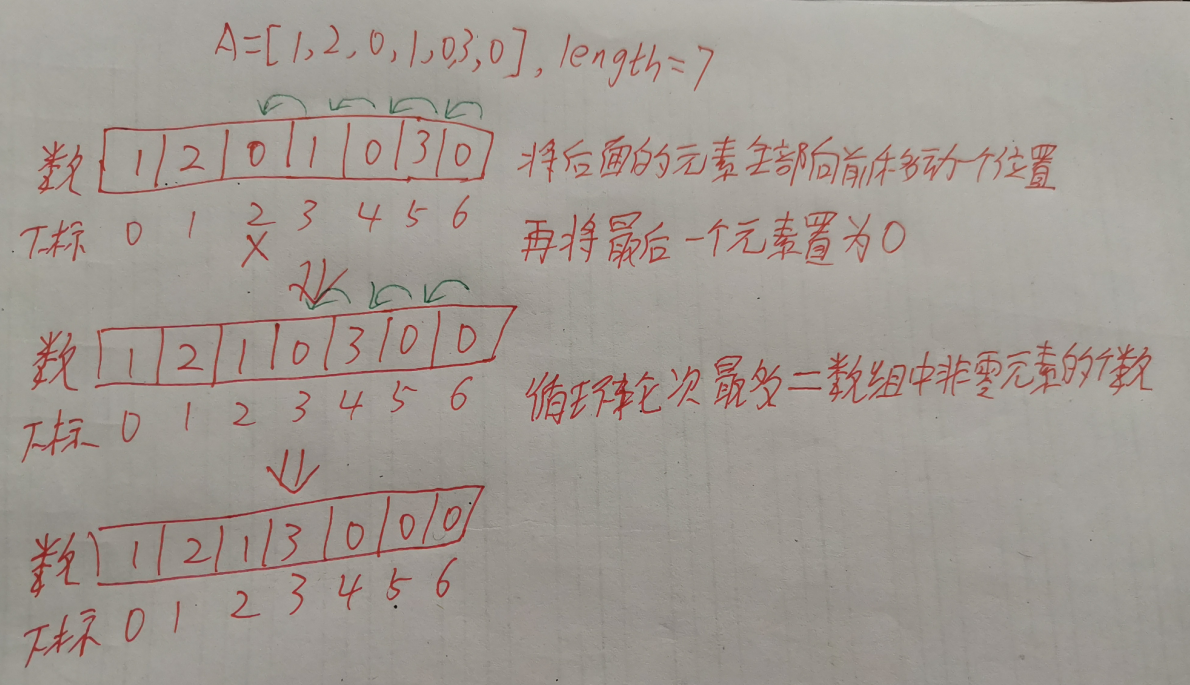 A=[1,2,0,1,0,3,0], length=7
数 1 2 0 1 0 3 0
下标 0 1 2 3 4 5 6
X
将后面的元素全部向前移动一个位置
再将最后一个元素置为0
数 1 2 1 0 3 0 0
下标 0 1 2 3 4 5 6
循环轮次最多=数组中非零元素的个数
数 1 2 1 3 0 0 0
下标 0 1 2 3 4 5 6